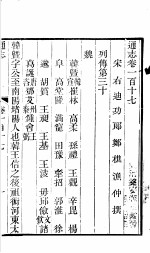 通志卷一百十七
宋右迪功郎鄭樵漁仲撰
列傳第三十
魏
韓暨 崔林 高柔 孫禮 王觀 辛毗 楊
阜 高堂隆 滿寵 田豫 牽招 郭淮 徐
邈 胡質 王昶 王基 王淩 毋丘儉 文諸
葛誕 唐咨 鄧艾 州泰 鍾會
韓暨字公至南陽堵陽人也韓王信之後祖術河東太